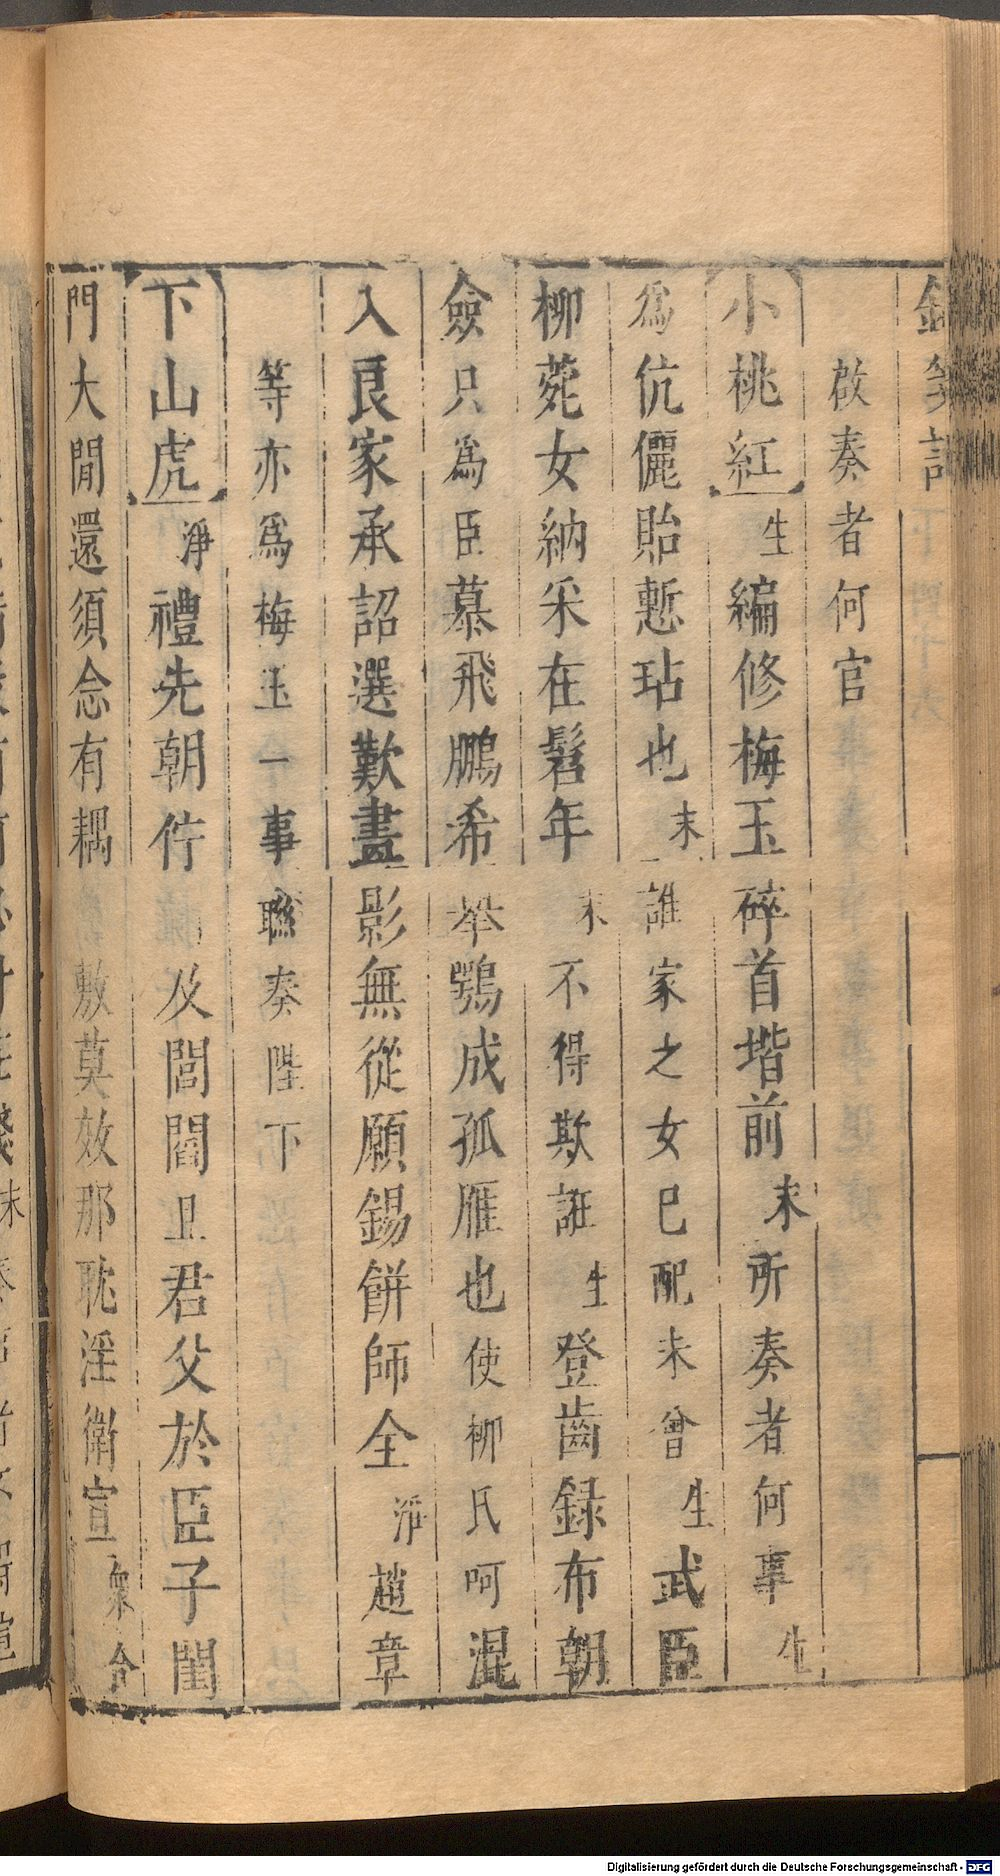 啟奏者何官
小桃紅生編修梅玉碎首堦前末所奏者何事生
爲伉儷貽慙玷也末誰家之女巳配未曾生武臣
柳蕘女納采在髫年末不得欺誑生登齒録布朝
僉只爲臣慕飛鵬希举鶚成孤雁也使柳氏呵混
入良家承詔選歎畫影無從願錫餅師全淨趙章
等亦爲梅玉一事聯奏陛下
下山虎淨禮先朝佇及閭閻且君父於臣子閨
門大閒還須念有耦敷莫效那耽淫衛宣衆合
Digitalisierung gefördert durch die Deutsche Forschungsgemeinschaft - DFG